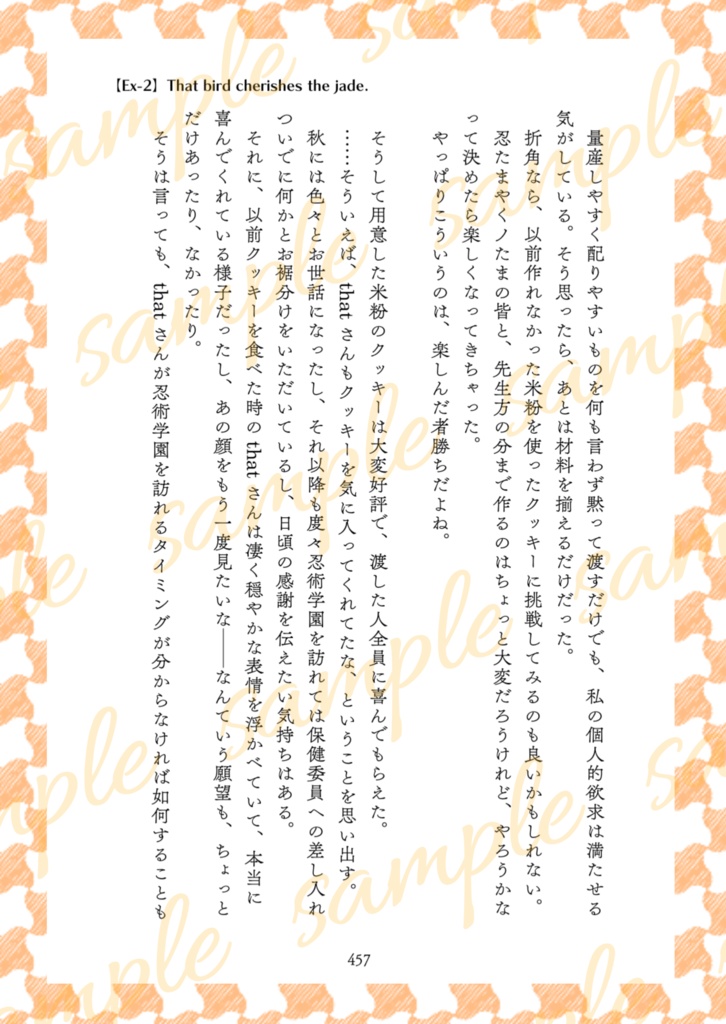 【Ex-2】That bird cherishes the jade.
量産しやすく配りやすいものを何も言わず黙って渡すだけでも、私の個人的欲求は満たせる
気がしている。そう思ったら、あとは材料を揃えるだけだった。
折角なら、以前作れなかった米粉を使ったクッキーに挑戦してみるのも良いかもしれない。
忍たまやくノたまの皆と、先生方の分まで作るのはちょっと大変だろうけれど、やろうかな
って決めたら楽しくなってきちゃった。
やっぱりこういうのは、楽しんだ者勝ちだよね。
そうして用意した米粉のクッキーは大変好評で、渡した人全員に喜んでもらえた。
……そういえば、thatさんもクッキーを気に入ってくれてたな、ということを思い出す。
秋には色々とお世話になったし、それ以降も度々忍術学園を訪れては保健委員への差し入れ
ついでに何かとお裾分けをいただいているし、日頃の感謝を伝えたい気持ちはある。
それに、以前クッキーを食べた時のthatさんは凄く穏やかな表情を浮かべていて、本当に
喜んでくれている様子だったし、あの顔をもう一度見たいな――なんていう願望も、ちょっと
だけあったり、なかったり。
そうは言っても、thatさんが忍術学園を訪れるタイミングが分からなければ如何することも
457
sample
sample
sample
sample
sample
sample
sample
sample
sample
sample
sample
sample
sample